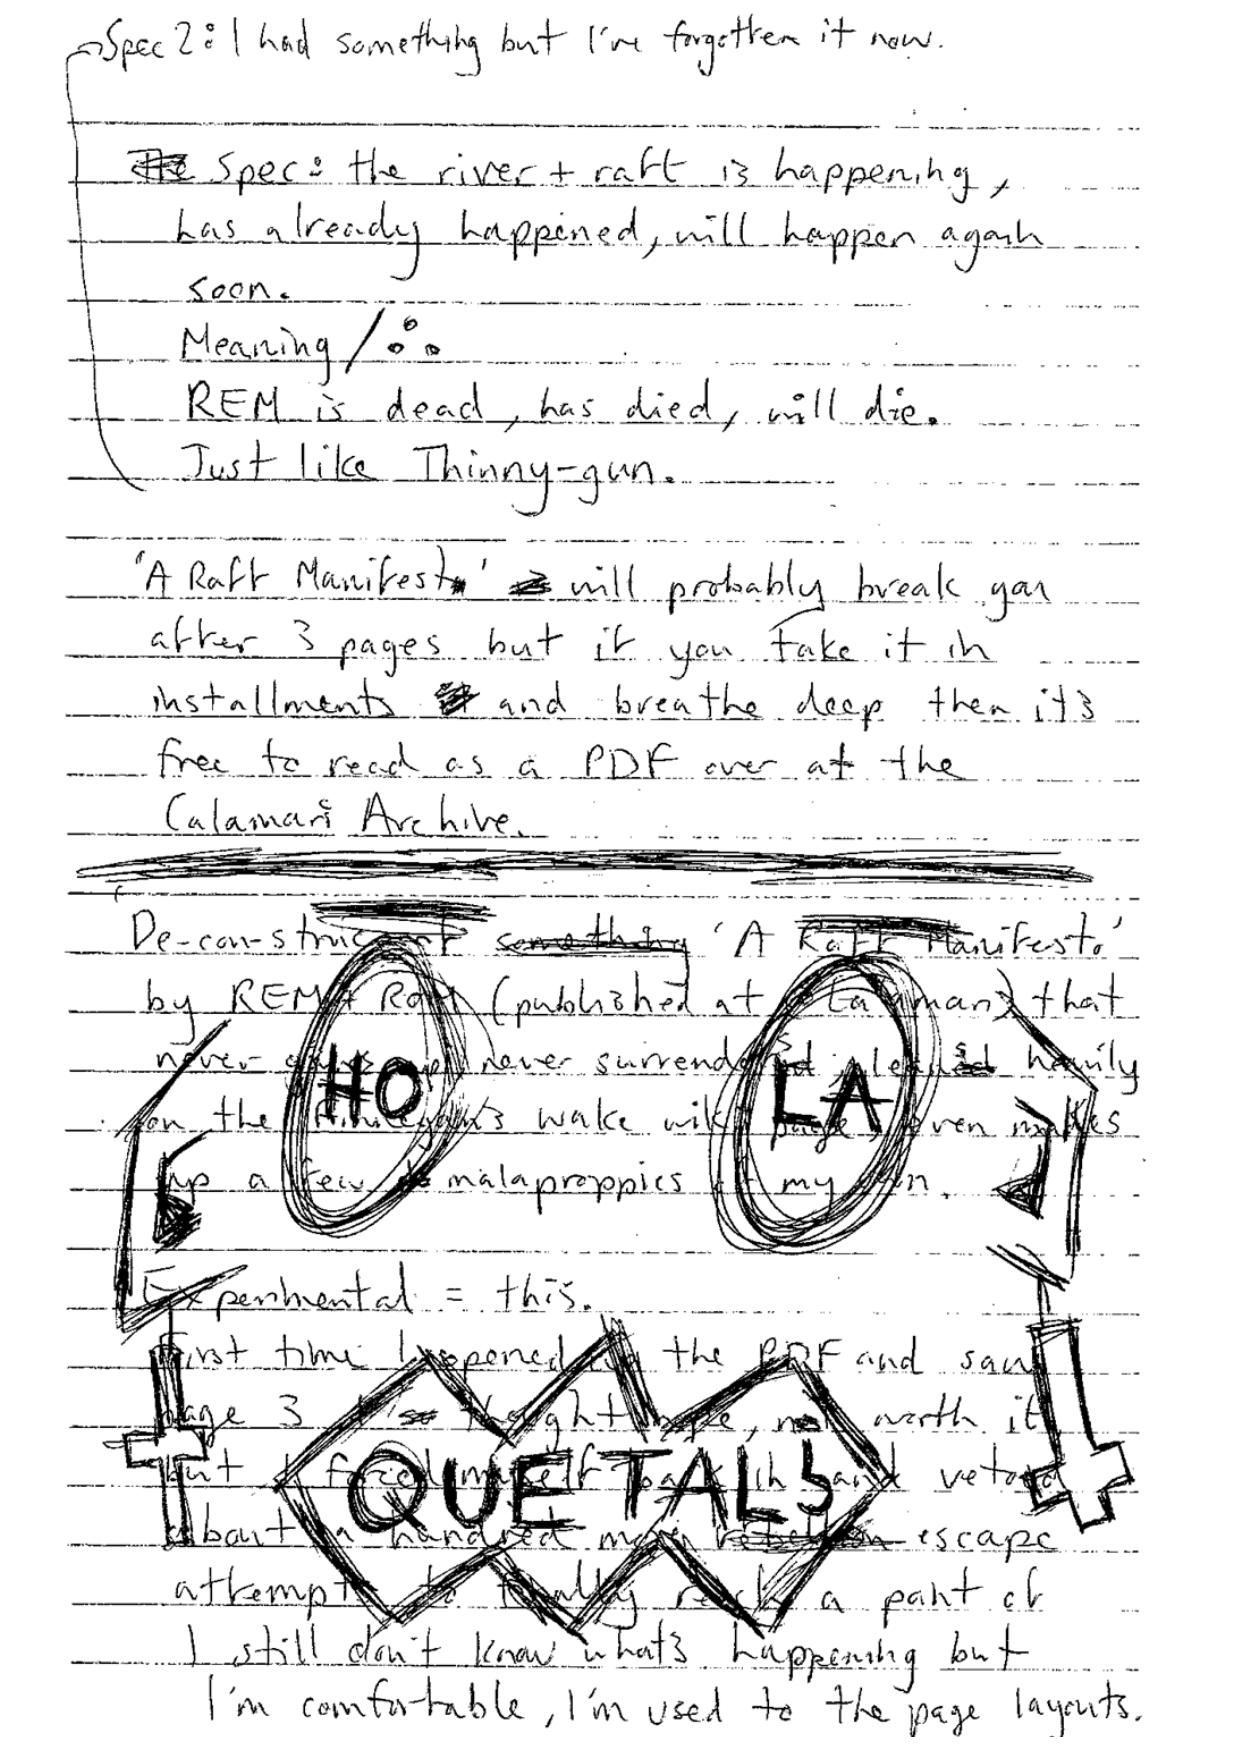 Spec 2: I had something but I've forgotten it now.
The Spec: the river + raft is happening,
has already happened, will happen again
soon.
Meaning / ∴
REM is dead, has died, will die.
Just like Thinny-gun.
'A Raft Manifesto' will probably break you
after 3 pages but if you take it in
installments and breathe deep then it's
free to read as a PDF over at the
Calamari Archive.
De-con-struct something 'A Raft Manifesto'
by REM + ROM (published at Calamari) that
never gives up, never surrenders, leans heavily
on the Finnegan's wake page even makes
up a few malaproppics of my own.
HO
LA
Experimental = this.
First time I opened the PDF and saw
page 3 I thought nope, not worth it
but I forced myself back in and vetoed
about a hundred more rebellion escape
attempts to finally reach a point of
QUE TALS
I still don't know what's happening but
I'm comfortable, I'm used to the page layouts.